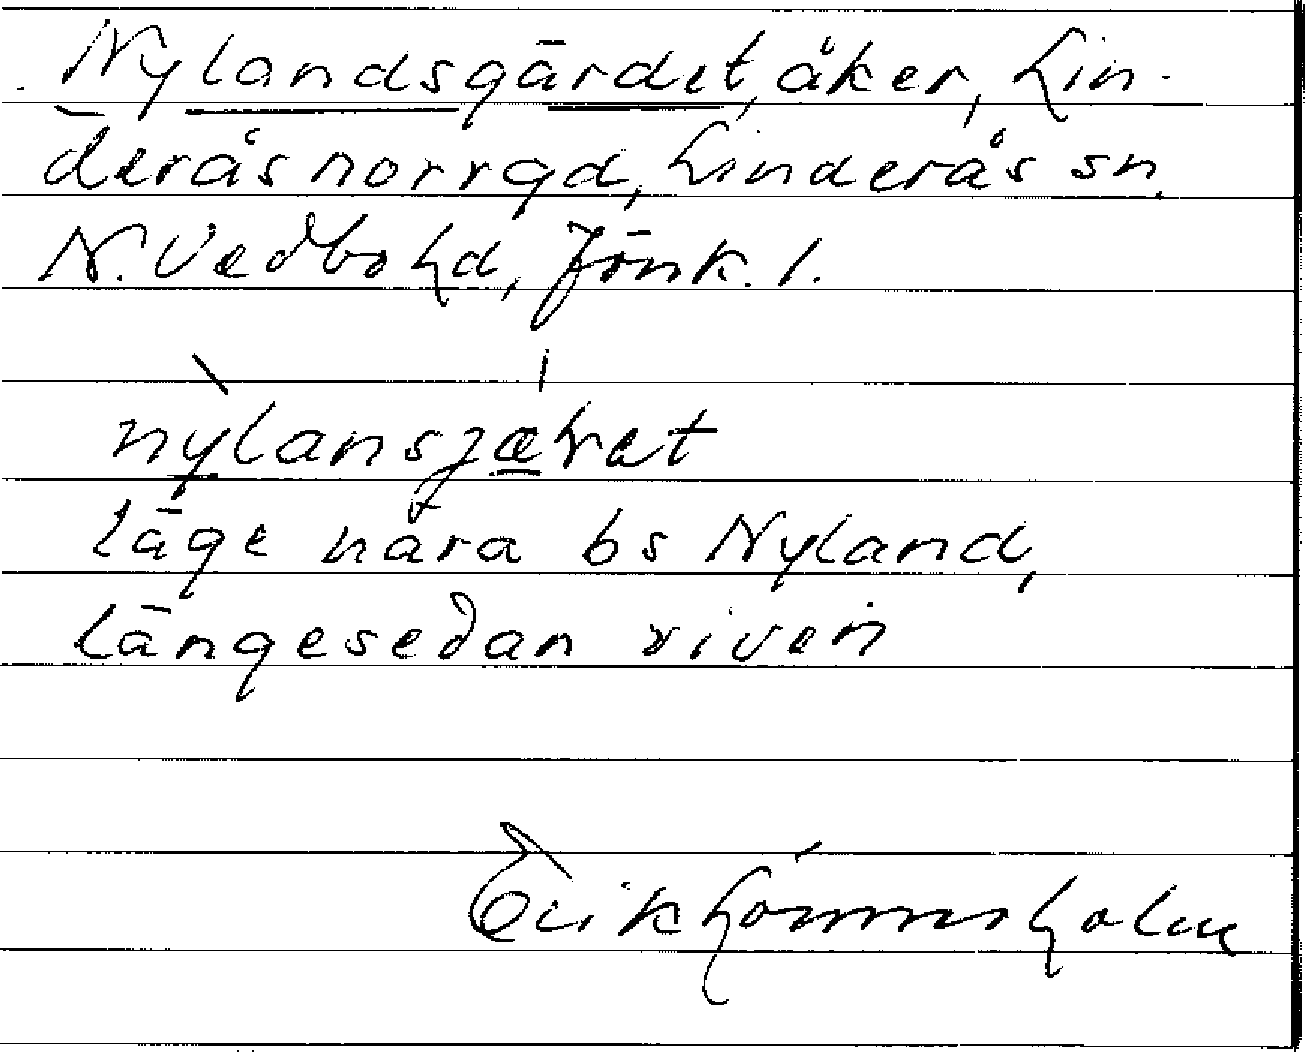 Nylandsgärdet, åker, Lin-
derås norrgd, Linderås sn.
N. Vedbo hd, Jönk. l.
nylansjæret
läge nära bs Nyland,
längesedan riven
Erik Lönnerholm